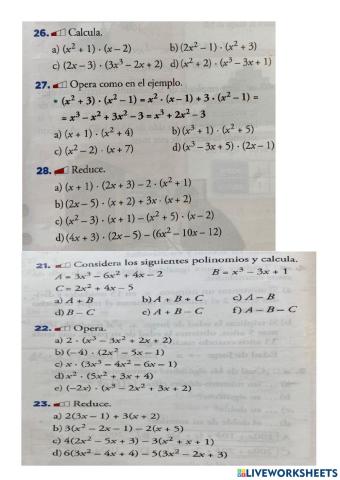 26. Calcula.
a) (x² + 1) · (x − 2) b) (2x² − 1) · (x² + 3)
c) (2x − 3) · (3x³ − 2x + 2) d) (x² + 2) · (x³ − 3x + 1)
27. Opera como en el ejemplo.
• (x² + 3) · (x² − 1) = x² · (x − 1) + 3 · (x² − 1) =
= x³ − x² + 3x² − 3 = x³ + 2x² − 3
a) (x + 1) · (x² + 4) b) (x³ + 1) · (x² + 5)
c) (x² − 2) · (x + 7) d) (x³ − 3x + 5) · (2x − 1)
28. Reduce.
a) (x + 1) · (2x + 3) − 2 · (x² + 1)
b) (2x − 5) · (x + 2) + 3x · (x + 2)
c) (x² − 3) · (x + 1) − (x² + 5) · (x − 2)
d) (4x + 3) · (2x − 5) − (6x² − 10x − 12)
21. Considera los siguientes polinomios y calcula.
A = 3x³ − 6x² + 4x − 2 B = x³ − 3x + 1
C = 2x² + 4x − 5
a) A + B b) A + B + C c) A − B
d) B − C e) A + B − C f) A − B − C
22. Opera.
a) 2 · (x³ − 3x² + 2x + 2)
b) (−4) · (2x² − 5x − 1)
c) x · (3x³ − 4x² − 6x − 1)
d) x² · (5x² + 3x + 4)
e) (−2x) · (x³ − 2x² + 3x + 2)
23. Reduce.
a) 2(3x − 1) + 3(x + 2)
b) 3(x² − 2x − 1) − 2(x + 5)
c) 4(2x² − 5x + 3) − 3(x² + x + 1)
d) 6(3x² − 4x + 4) − 5(3x² − 2x + 3)
LIVEWORKSHEETS